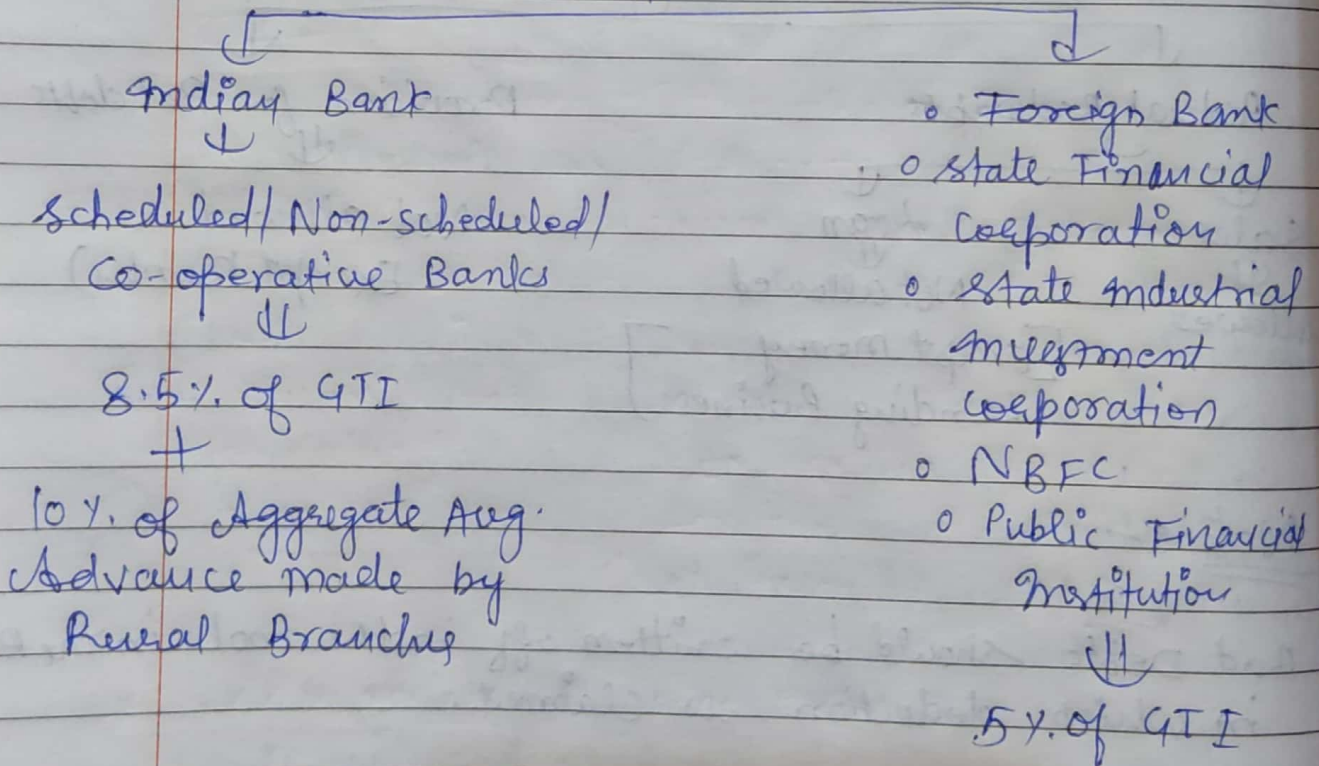 Indian Bank
↓
Scheduled/Non-scheduled/
Co-operative Banks
⇓
8.5% of GTI
+
10% of Aggregate Avg.
Advance made by
Rural Branches
o Foreign Bank
o State Financial
Corporation
o State Industrial
Investment
Corporation
o NBFC
o Public Financial
Institution
⇓
5% of GTI